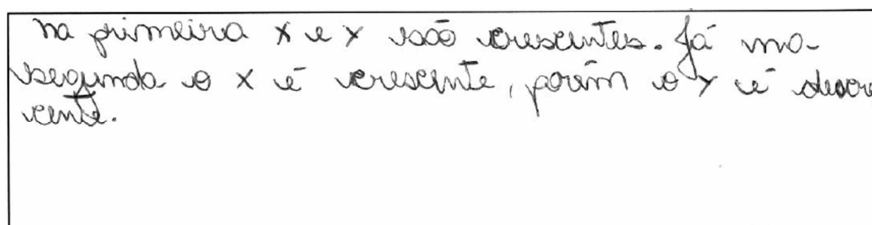 na primeira x e y são crescentes. Já na
segunda o x é crescente, porém o y é decre
cente.